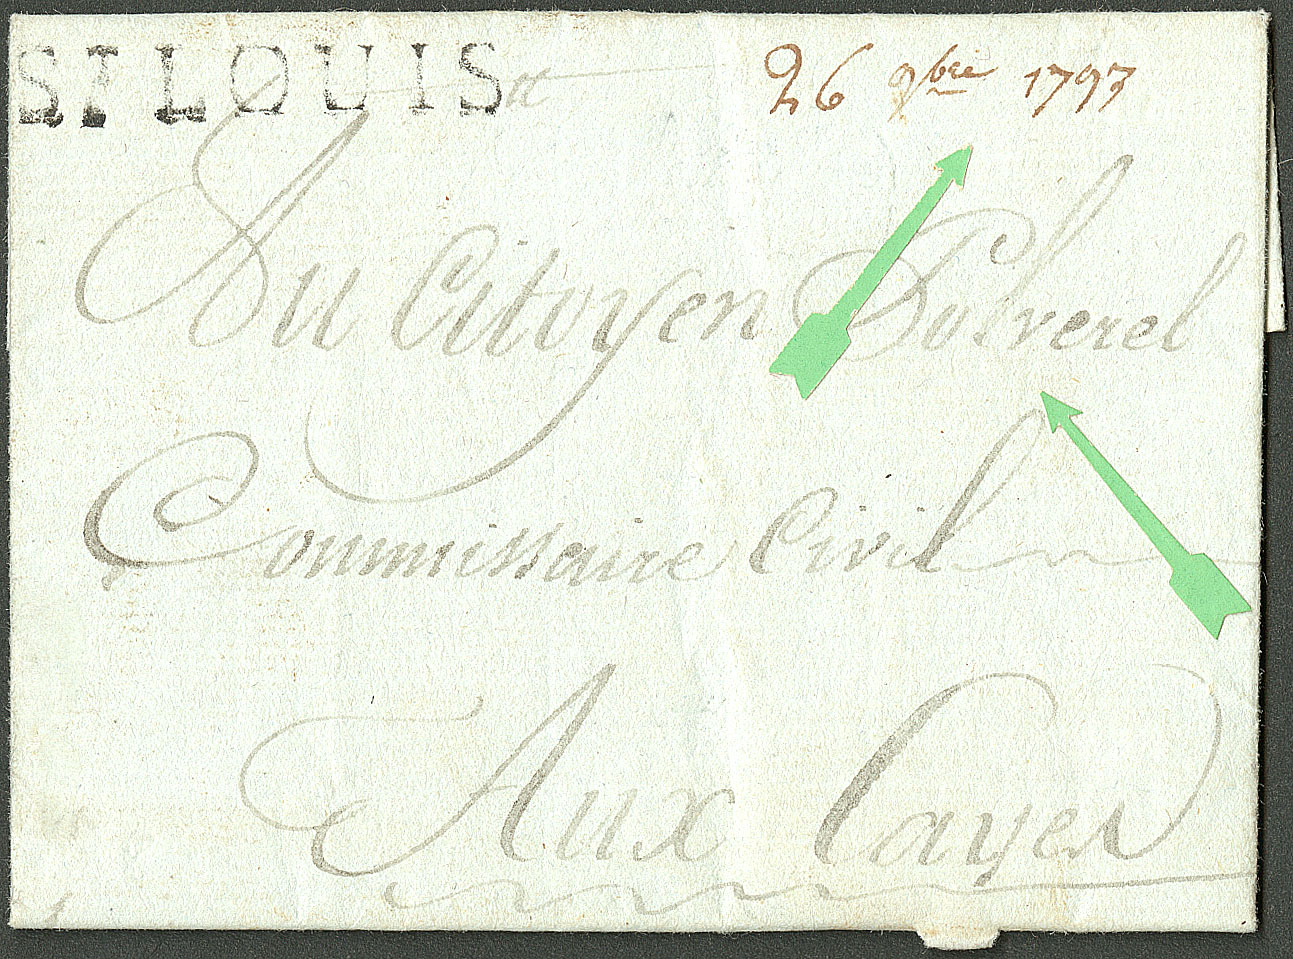 ST LOUIS 26 9bre 1793
Au Citoyen Polverel
Commissaire Civil
Aux Cayes